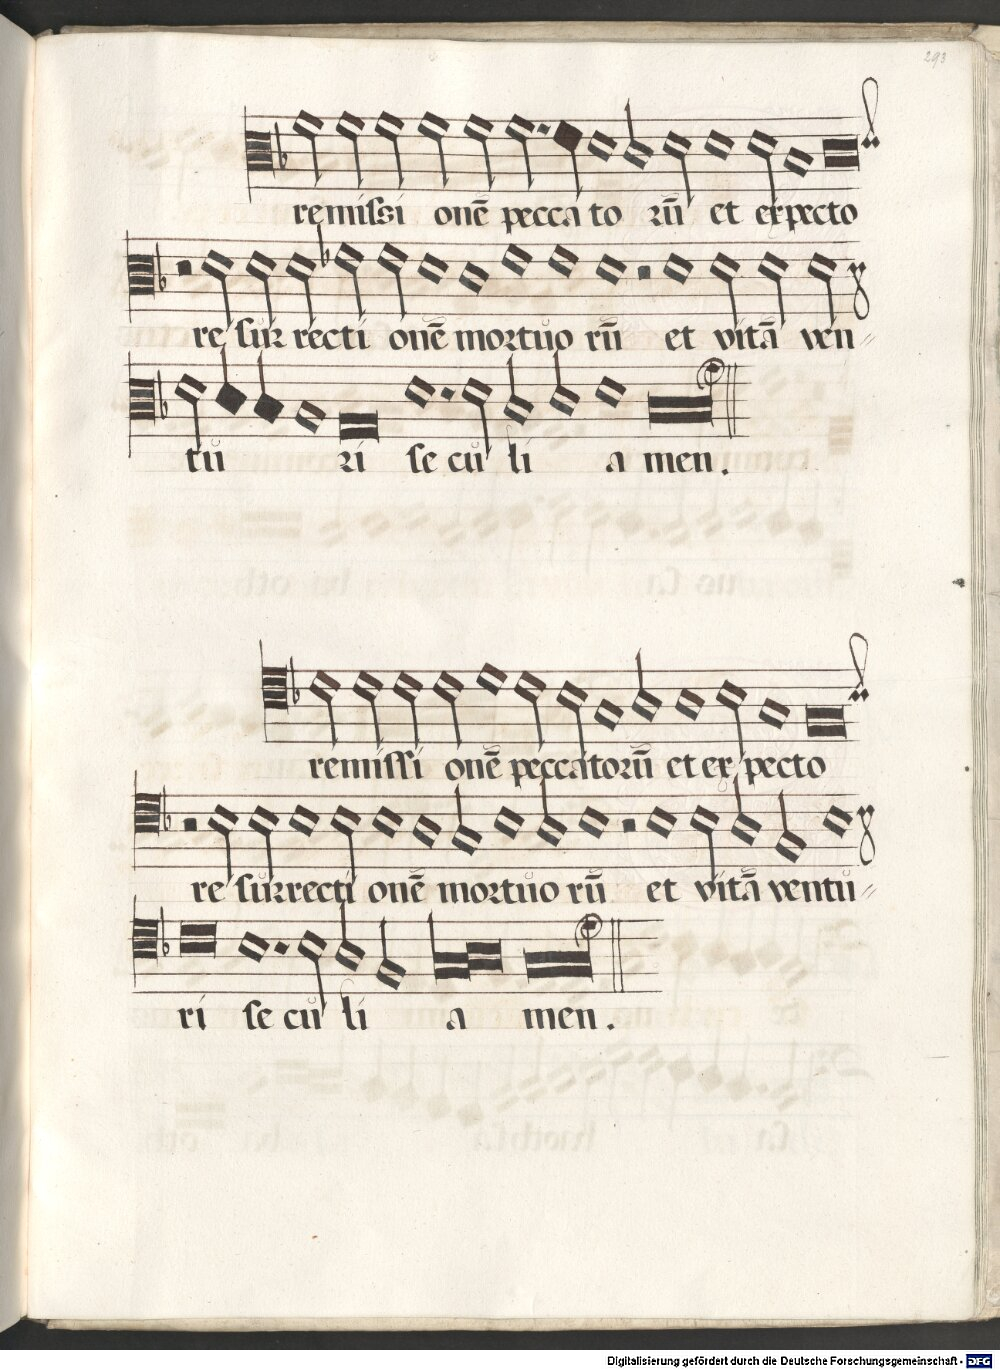 293
remissi onē pecca to rū et expecto
re sur recti onē mortuo rū et vitā ven〃
tu ri se cu li a men.
remissi onē peccatorū et ex pecto
re surrecti onē mortuo rū et vitā ventu〃
ri se cu li a men.
Digitalisierung gefördert durch die Deutsche Forschungsgemeinschaft - DFG